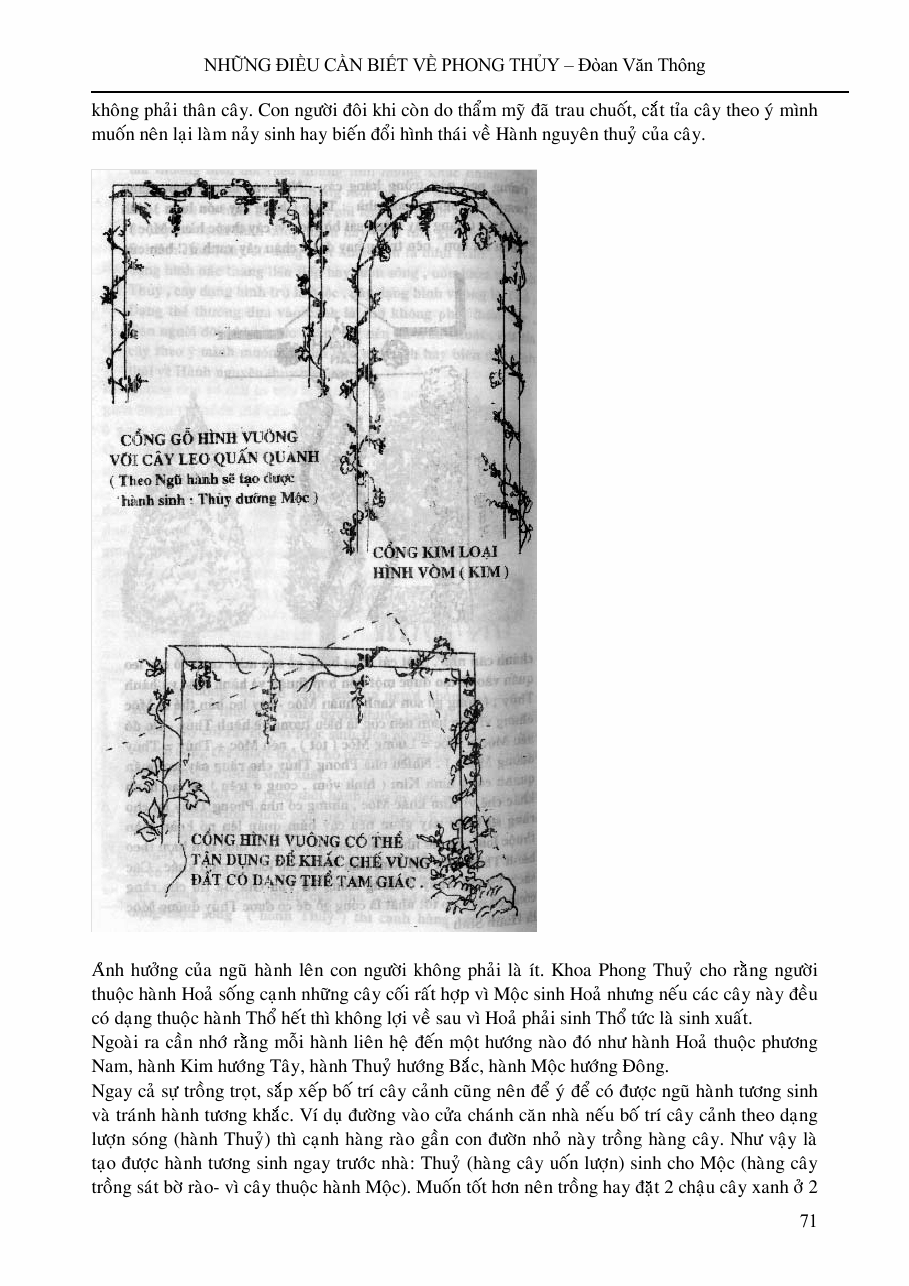 NHỮNG ĐIỀU CẦN BIẾT VỀ PHONG THỦY – Đòan Văn Thông
không phải thân cây. Con người đôi khi còn do thẩm mỹ đã trau chuốt, cắt tỉa cây theo ý mình
muốn nên lại làm nảy sinh hay biến đổi hình thái về Hành nguyên thuỷ của cây.
CỔNG GỖ HÌNH VUÔNG
VỚI CÂY LEO QUẤN QUANH
( Theo Ngũ hành sẽ tạo được
hành sinh : Thủy dưỡng Mộc )
CỔNG KIM LOẠI
HÌNH VÒM ( KIM )
CỔNG HÌNH VUÔNG CÓ THỂ
TẬN DỤNG ĐỂ KHẮC CHẾ VÙNG
ĐẤT CÓ DẠNG THỂ TAM GIÁC .
Ảnh hưởng của ngũ hành lên con người không phải là ít. Khoa Phong Thuỷ cho rằng người
thuộc hành Hoả sống cạnh những cây cối rất hợp vì Mộc sinh Hoả nhưng nếu các cây này đều
có dạng thuộc hành Thổ hết thì không lợi về sau vì Hoả phải sinh Thổ tức là sinh xuất.
Ngoài ra cần nhớ rằng mỗi hành liên hệ đến một hướng nào đó như hành Hoả thuộc phương
Nam, hành Kim hướng Tây, hành Thuỷ hướng Bắc, hành Mộc hướng Đông.
Ngay cả sự trồng trọt, sắp xếp bố trí cây cảnh cũng nên để ý để có được ngũ hành tương sinh
và tránh hành tương khắc. Ví dụ đường vào cửa chánh căn nhà nếu bố trí cây cảnh theo dạng
lượn sóng (hành Thuỷ) thì cạnh hàng rào gần con đườn nhỏ này trồng hàng cây. Như vậy là
tạo được hành tương sinh ngay trước nhà: Thuỷ (hàng cây uốn lượn) sinh cho Mộc (hàng cây
trồng sát bờ rào- vì cây thuộc hành Mộc). Muốn tốt hơn nên trồng hay đặt 2 chậu cây xanh ở 2
71